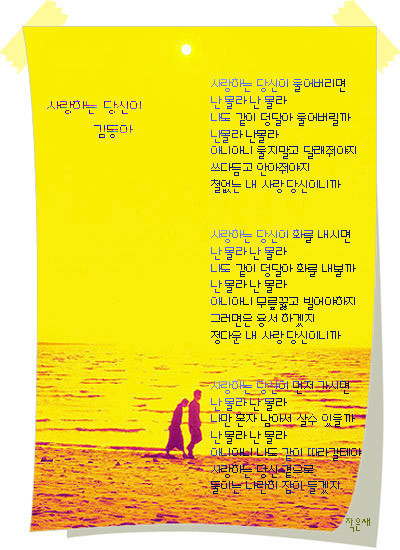 사랑하는 당신이
김동아
사랑하는 당신이 울어버리면
난 몰라 난 몰라
나도 같이 덩달아 울어버릴까
난몰라 난몰라
아니아니 울지말고 달래줘야지
쓰다듬고 안아줘야지
철없는 내 사랑 당신이니까
사랑하는 당신이 화를 내시면
난 몰라 난 몰라
나도 같이 덩달아 화를 내볼까
난 몰라 난 몰라
아니아니 무릎꿇고 빌어야하지
그러면은 용서 하겠지
정다운 내 사랑 당신이니까
사랑하는 당신이 먼저 가시면
난 몰라 난 몰라
나만 혼자 남아서 살수 있을까
난 몰라 난 몰라
아니아니 나도 같이 따라갈테야
사랑하는 당신 곁으로
둘이는 나란히 잠이 들겠지
작은새